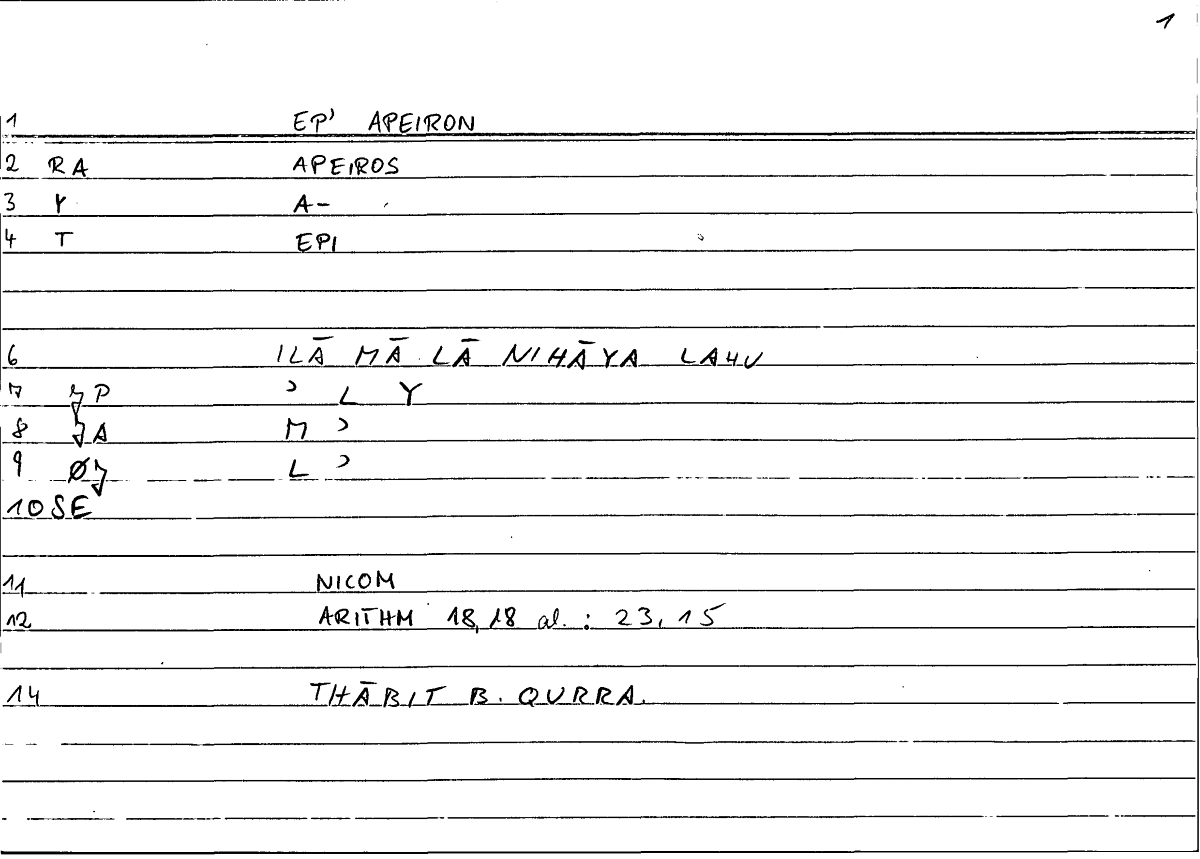 1
1 EP' APEIRON
2 RA APEIROS
3 Y A-
4 T EPI
6 ILĀ MĀ LĀ NIHĀYA LAHU
7 P ʾ L Y
8 A M ʾ
9 Ø L ʾ
10 SE
11 NICOM
12 ARITHM 18,18 al. : 23,15
14 THĀBIT B. QURRA.